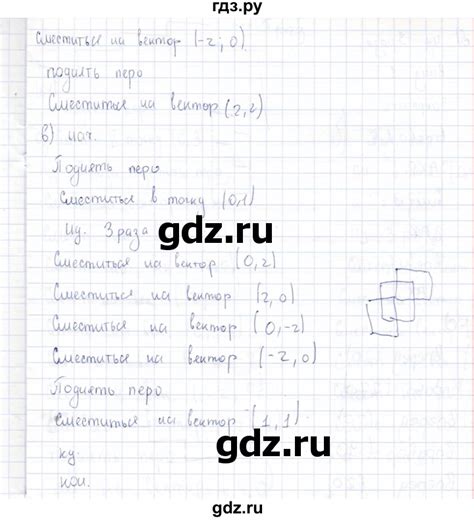 гдз.ру
сместиться на вектор (-2; 0)
поднять перо
Сместиться на вектор (2, 2)
в) нач.
Поднять перо
Сместиться в точку (0,1)
Нц. 3 раза
гдз.ru
Сместиться на вектор (0, 2)
Сместиться на вектор (2, 0)
Сместиться на вектор (0, -2)
Сместиться на вектор (-2, 0)
Поднять перо
Сместиться на вектор (1, 1)
гдз.ru
кц.
кон.
gdz.ru